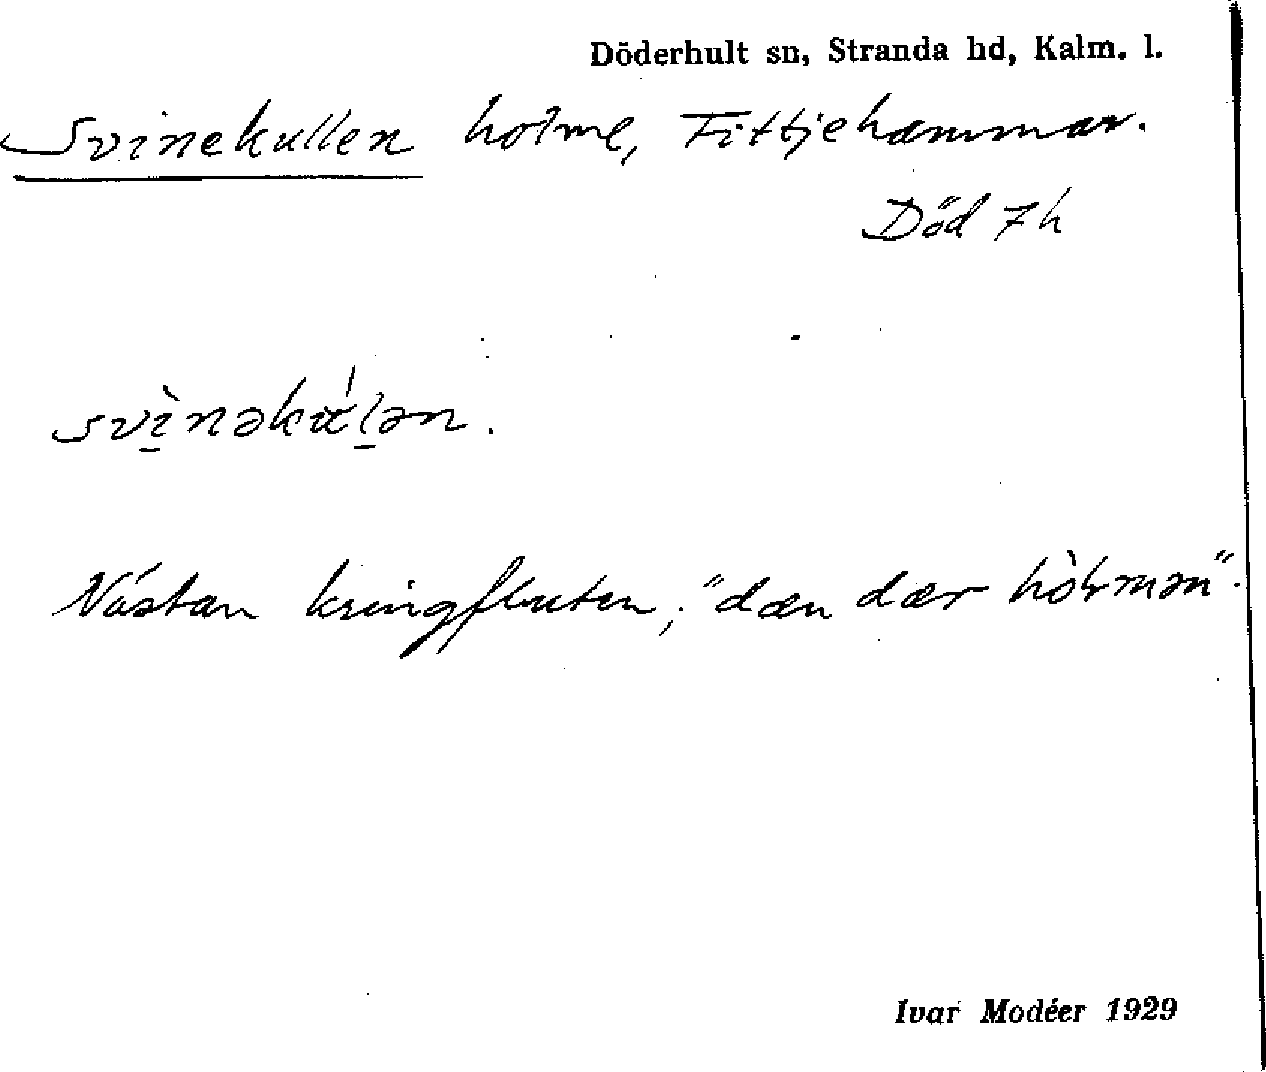 Döderhult sn, Stranda hd, Kalm. l.
Svinekullen holme, Fittjehammar.
Död 7h
svìnəkúlən.
Nästan kringfluten; "dæn dær hòlmən".
Ivar Modéer 1929